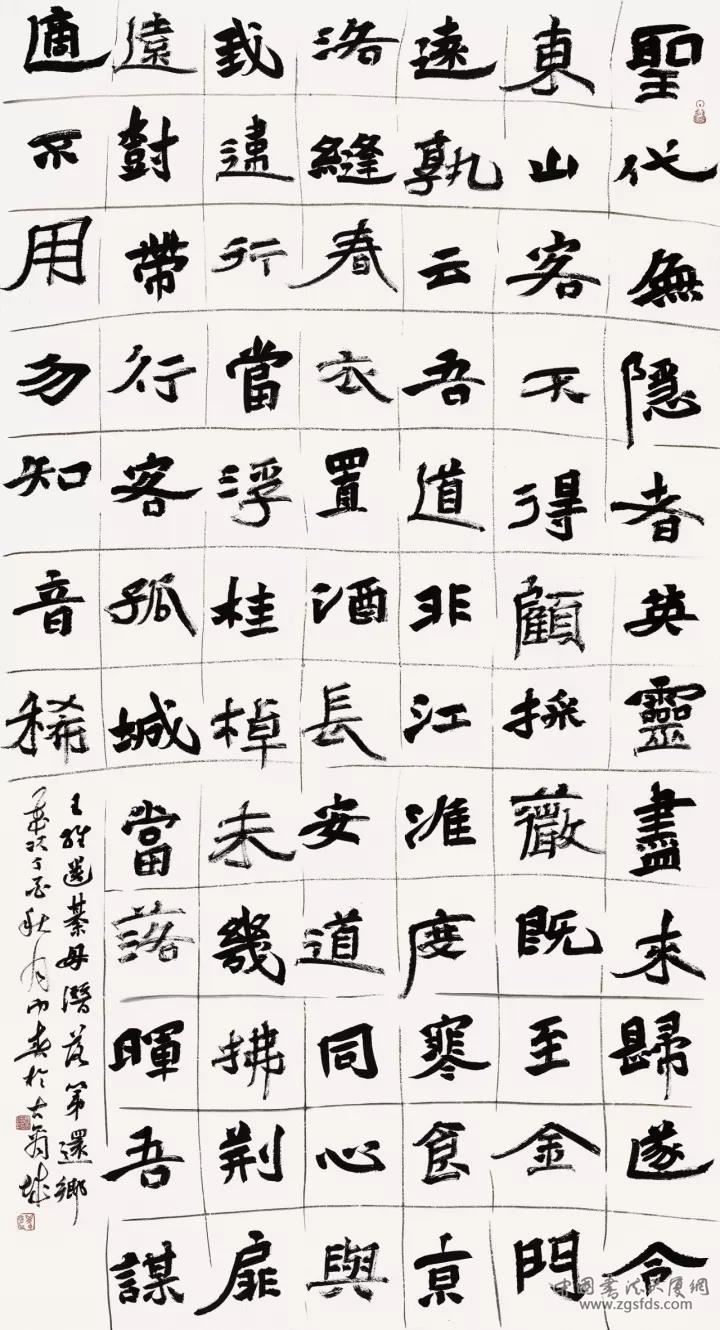 聖代無隱者英靈盡來歸遂令
東山客不得顧採薇既至金門
遠孰云吾道非江淮度寒食京
洛縫春衣置酒長安道同心與
我違行當浮桂棹未幾拂荆扉
遠樹帶行客孤城當落暉吾謀
適不用勿知音稀
王維送綦母潛落第還鄉
歲次丁酉秋月於古城
中國書法大厦網
www.zgsfds.com